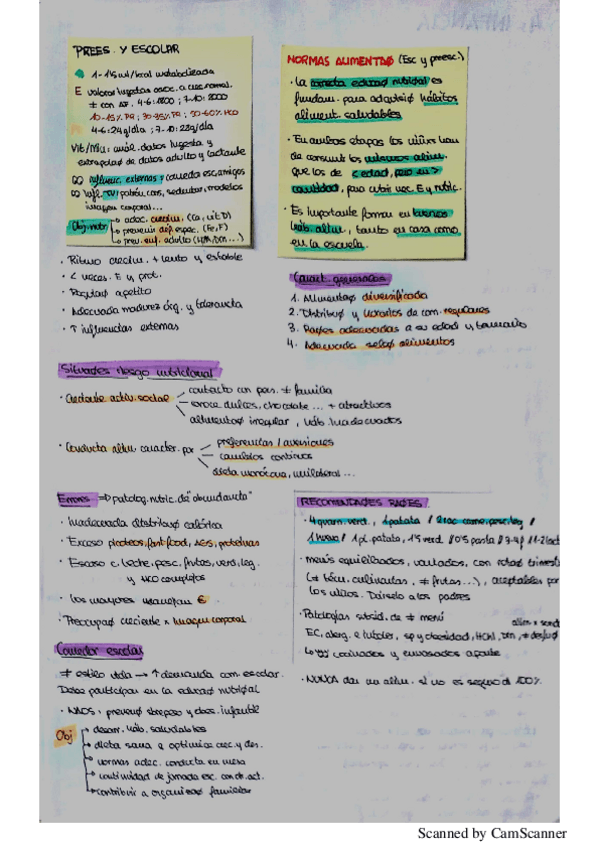 PREES. Y ESCOLAR
1-1'5 ml/kcal metabolizada
E valorar ingestas asoc. a crec. normal.
± con AF. 4-6: 1800 ; 7-10: 2000
10-15% PR ; 30-35% ; 50-60% HCO
4-6: 24g/día ; 7-10: 28g/día
Vit/Miu: anál. datos ingesta y
extrapolaø de datos adulto y lactante
influenc. externas: comedor esc, amigos
infl. TV: patrón com, sedentar, modelos
imagen corporal...
Obj. nutri → adec. crecim. (Ca, vit D)
→ prevenir def. espec. (Fe, F)
→ prev. enf. adulto (HTA, Dm...)
· Ritmo crecim. + lento y estable
· < neces. E y prot.
· Regulaø apetito
· Adecuada madurez dig. y tolerancia
· ↑ influencias externas
NORMAS ALIMENTAø (Esc y preesc.)
· La correcta educaø nutricional es
fundam. para adquisiø hábitos
aliment. saludables.
· En ambas etapas los niños han
de consumir los mismos alim.
que los de < edad, pero en >
cantidad, para cubrir nec. E y nutric.
· Es importante formar en buenos
háb. alim., tanto en casa como
en la escuela.
Caract. generales
1. Alimentaø diversificada
2. Distribuø y horarios de com. regulares
3. Raões adecuadas a su edad y tamaño
4. Adecuada selecø alimentos
Situaões riesgo nutricional
· Creciente activ. social
contacto con pers. ≠ familia
conoce dulces, chocolate ... + atractivos
alimentaø irregular, háb. inadecuados
· Conducta alim. caracter. por
preferencias / aversiones
cambios continuos
dieta monótona, unilateral...
Errores ⇒ patolog. nutric. de "abundancia"
· Inadecuada distribuø calórica
· Exceso picoteos, fast food, AGS, proteínas
· Escaso c. leche, pesc, frutas, verd, leg.
y HCO complejos
· Los mayores manejan €
· Preocupaø creciente x imagen corporal
RECOMENDAõES RAõES
· 4 guarn. verd., 1 patata / 2 rac carne, pesc, leg /
1 huevo / 1 pl. patata, 1'5 verd / 0'5 pasta /
· menús equilibrados, variados, con rotaø trimest
(≠ técn. culinarias, ≠ frutas...), aceptables por
los niños. Dárselo a los padres
· Patologías subsid. de ≠ menú
EC, alerg. e intoler, sp y obesidad, HCol, Dm,
cocinados y envasados aparte
· NUNCA dar un alim. si no es seguro al 100%.
Comedor escolar
≠ estilo vida → ↑ demanda com. escolar.
Debe participar en la educaø nutricional
· NAOS: prevenø sobrepeso y obes. infantil
Obj
desarr. háb. saludables
dieta sana e optimice crec. y des.
normas adec. conducta en mesa
continuidad de jornada esc. con otr. act.
contribuir a organizaø familiar
Scanned by CamScanner